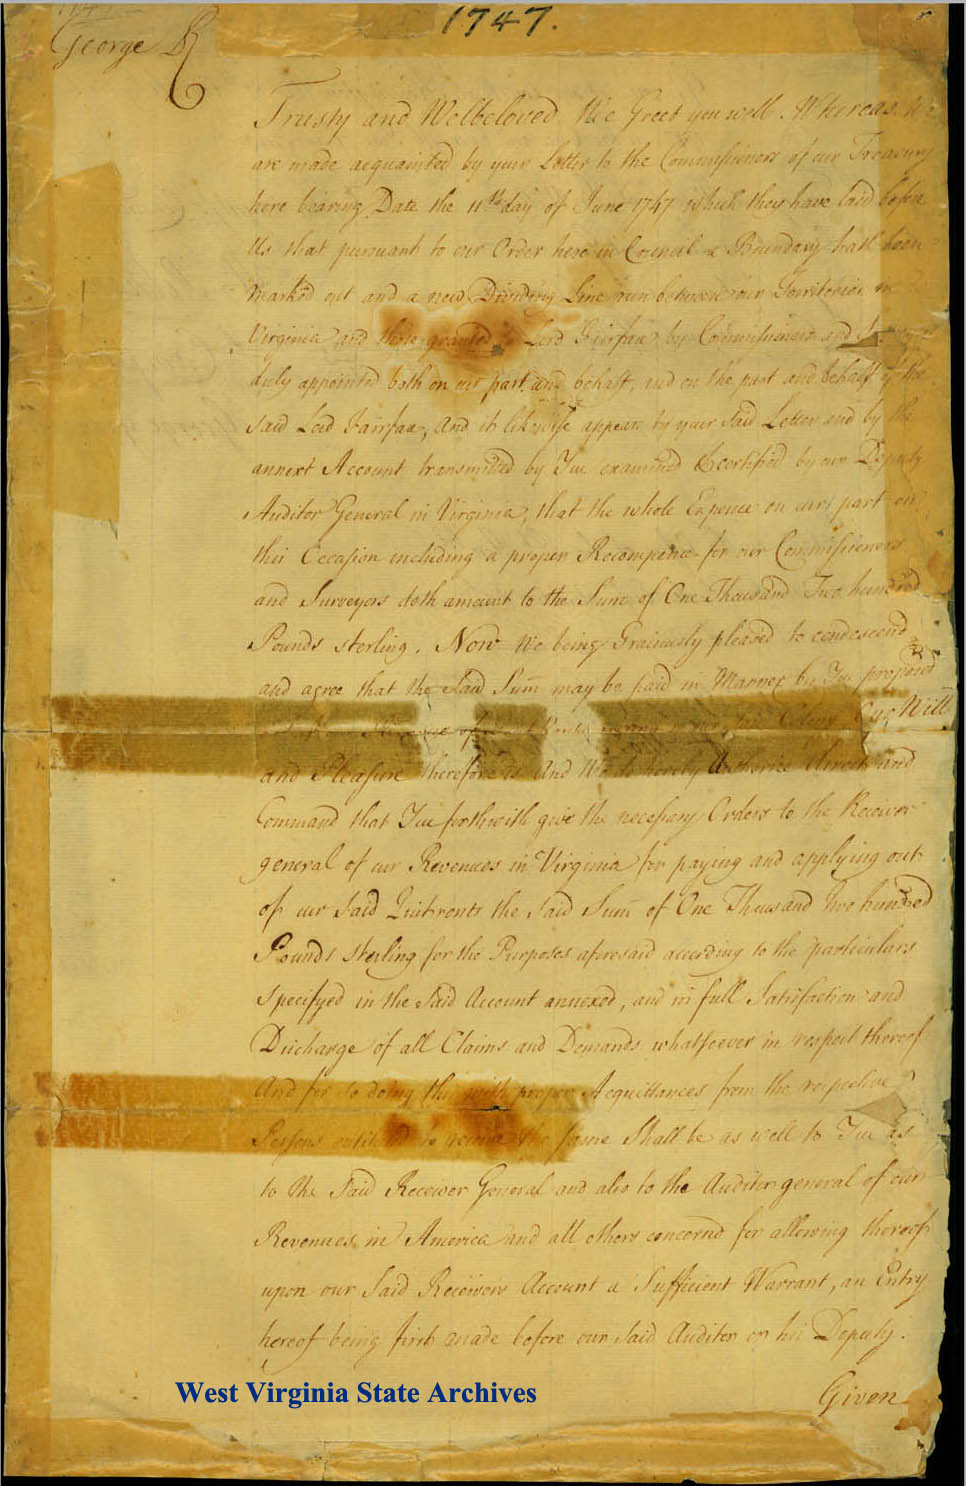 1747.
George R
Trusty and Welbeloved We Greet you well. Whereas We
are made acquainted by your Letter to the Commissioners of our Treasury
here bearing Date the 11th day of June 1747 which they have laid before
Us that pursuant to our Order here in Council a Boundary hath been
markèd out and a new Dividing Line run between our Territories in
Virginia and those granted to Lord Fairfax by Commissioners and
duly appointed both on our part and behalf, and on the part and behalf of the
said Lord Fairfax, And it likewise appears by your said Letter and by the
annext Account transmitted by You examined & certified by our Deputy
Auditor General in Virginia, that the whole Expence on our part on
this Occasion including a proper Recompence for our Commissioners
and Surveyors doth amount to the Sum of One Thousand Two hundred
Pounds sterling. Now We being Graciously pleased to condescend
and agree that the said Sum may be paid in Manner by You proposed
of our Colony Our Will
and Pleasure therefore is And We do hereby Authorize Direct and
Command that You forthwith give the necessary Orders to the Receiver
general of our Revenues in Virginia for paying and applying out
of our said Quitrents the said Sum of One Thousand two hundred
Pounds sterling for the Purposes aforesaid according to the particulars
specifyed in the said Account annexed, and in full Satisfaction and
Discharge of all Claims and Demands whatsoever in respect thereof
And for so doing this with proper Acquittances from the respective
Persons entitled to receive the same Shall be as well to You as
to the said Receiver General and also to the Auditor general of our
Revenues in America and all others concernd for allowing thereof
upon our said Receivers Account a Sufficient Warrant, an Entry
hereof being first made before our said Auditor or his Deputy.
West Virginia State Archives
Given